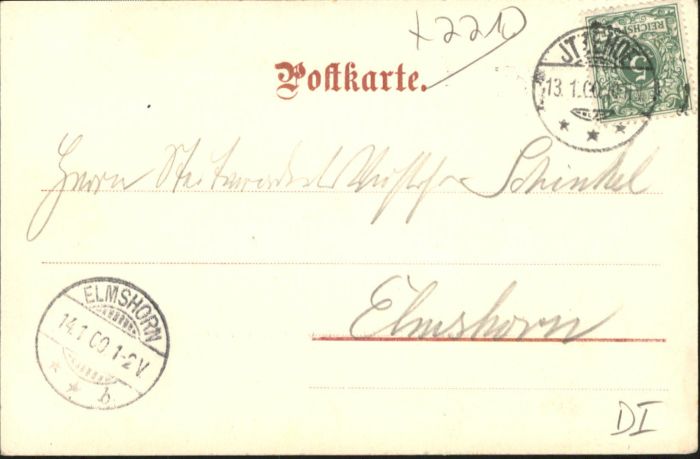 x2210
Postkarte.
JTZEHOE
13.1.00
REICHSPOST
5
Herrn Schinkel
Elmshorn
ELMSHORN
14.1.00.1-2V.
* * b.
DI